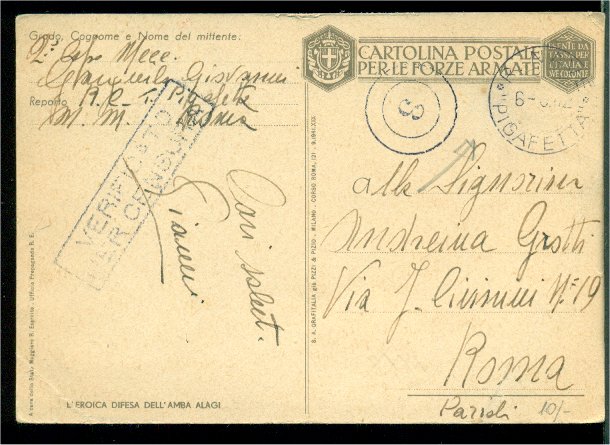 Grado, Cognome e Nome del mittente:
2° Capo Mecc.
Giovanni
Reparto R.C.T. Pigafetta
M. M. Roma
VERIFICATO
PER CENSURA
Cari saluti
Gianni
CARTOLINA POSTALE
PER LE FORZE ARMATE
ESENTE DA
TASSA PER
L'ITALIA E
SUE COLONIE
"PIGAFETTA"
Alla Signorina
Andreina Grotti
Via J. N° 19
Roma
Parioli 10/-
S. A. GRAFITALIA già PIZZI & PIZIO - MILANO - CORSO ROMA, 121 - 9.1941.XIX
A cura dello Stato Maggiore R. Esercito - Ufficio Propaganda R. E.
L'EROICA DIFESA DELL'AMBA ALAGI